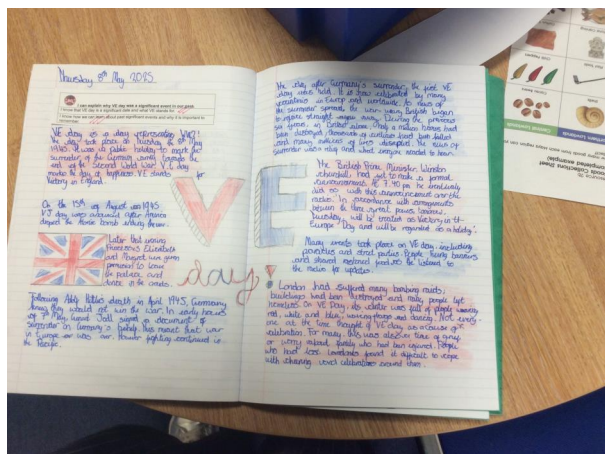 Thursday 8th May 2025
I can explain why VE day was a significant event in our past.
I know that VE day is a significant date and what VE stands for
I know how we can learn about past significant events and why it is important to remember.
VE day is a day representing WW2!
The day took place on Tuesday the 8th May
1945. It was a public holiday to mark the
surrender of the German army towards the
end of the Second World War. V.E day
marks the day of happiness. VE stands for
Victory in England.
On the 15th of August 1945
VJ day was announced after America
droped the Atomic bomb
Later that evening
Princesses Elizabeth
and Margret were given
permision to leave
the palace, and
dance in the crowds.
Following Adolf Hitlers death in April 1945, Germany
knew they would not win the war. In early hours
of 7th May, Signed a document of
surrender on Germany's . This meant that war
in Europe or was over. However fighting continued in
the Pacific.
VE
day!
The day after Germany's surrender, the first VE
day was held. It is now celebrated by many
countries in Europe and worldwide. As news of
the surrender spread, the war weary British began
to rejoice straight away. During the previous
six years in half a million homes had
been destroyed, thousands of civilians had been killed
and many millions of lives disrupted. The news of
surrender was what everyone wanted to hear.
The British Prime Minister Winston
churchill, had yet to make a formal
announcement. At 7.40 pm he
did so with this announcement over the
radio. In accordance with arrangements
between the three great powers, tomorrow,
Tuesday, will be treated as Victory in
Europe Day and will be regarded as a holiday'.
Many events took place on VE day including
parades and street parties. People hung banners
and shared rationed food listened to
the radio for updates.
London had suffered many bombing raids.
buildings had been destroyed and many people left
homeless. On VE Day, its was full of people wearing
red, white and blue, waving flags and dancing. Not every-
one at the time thought of VE day as a cause of
celebration. For many, this was also a time of grief
or worry had been injured. People
who had lost loved ones found it difficult to cope
with celebrations around them.